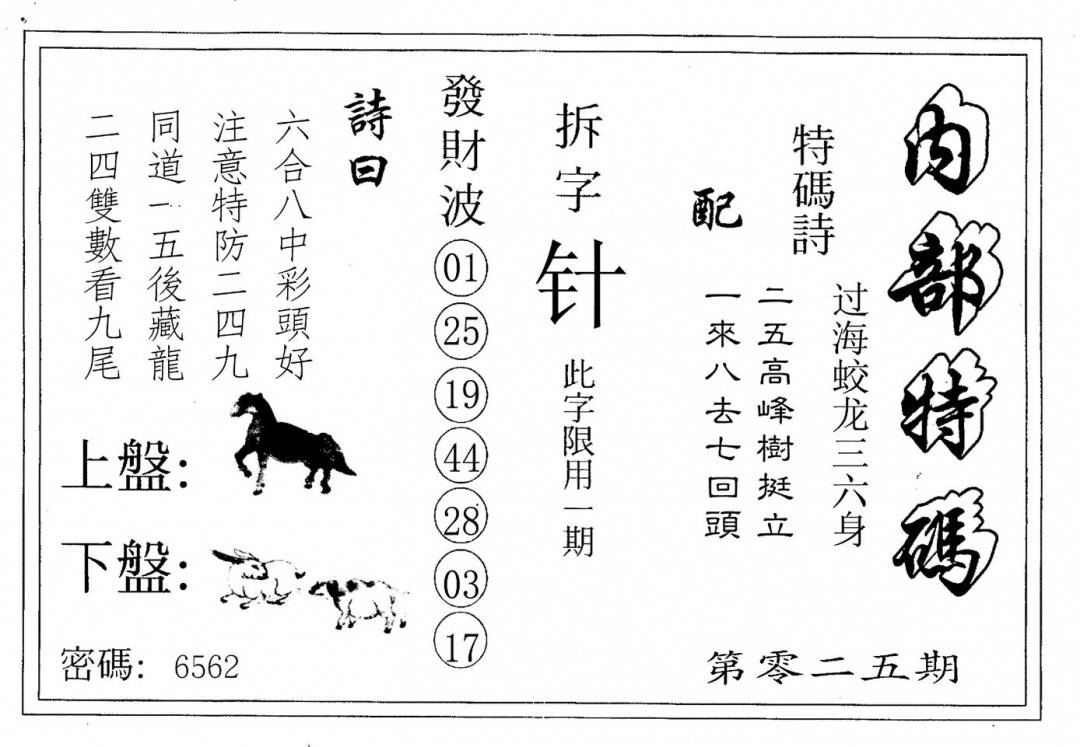 內部特碼
特碼詩
过海蛟龙三六身
配
二五高峰樹挺立
一來八去七回頭
第零二五期
拆字
针
此字限用一期
發財波
01
25
19
44
28
03
17
詩曰
六合八中彩頭好
注意特防二四九
同道一五後藏龍
二四雙數看九尾
上盤：
下盤：
密碼：6562